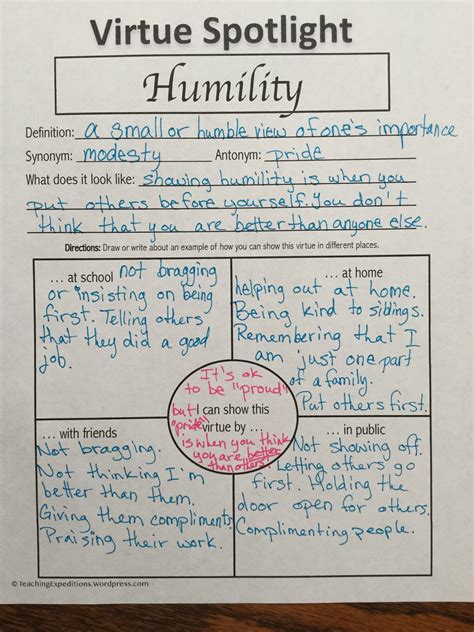 Virtue Spotlight
Humility
Definition: a small or humble view of one's importance
Synonym: modesty Antonym: pride
What does it look like: showing humility is when you
put others before yourself. You don't
think that you are better than anyone else.
Directions: Draw or write about an example of how you can show this virtue in different places.
... at school not bragging
or insisting on being
first. Telling others
that they did a good
job.
... at home
helping out at home.
Being kind to siblings.
Remembering that I
am just one part
of a family.
Put others first.
It's ok
to be "proud"
but I can show this
"pride" virtue by ...
is when you think
you are better
than others!
... with friends
Not bragging.
Not thinking I'm
better than them.
Giving them compliments
Praising their work.
... in public
Not showing off.
Letting others go
first. Holding the
door open for others.
Complimenting people.
© TeachingExpeditions.wordpress.com